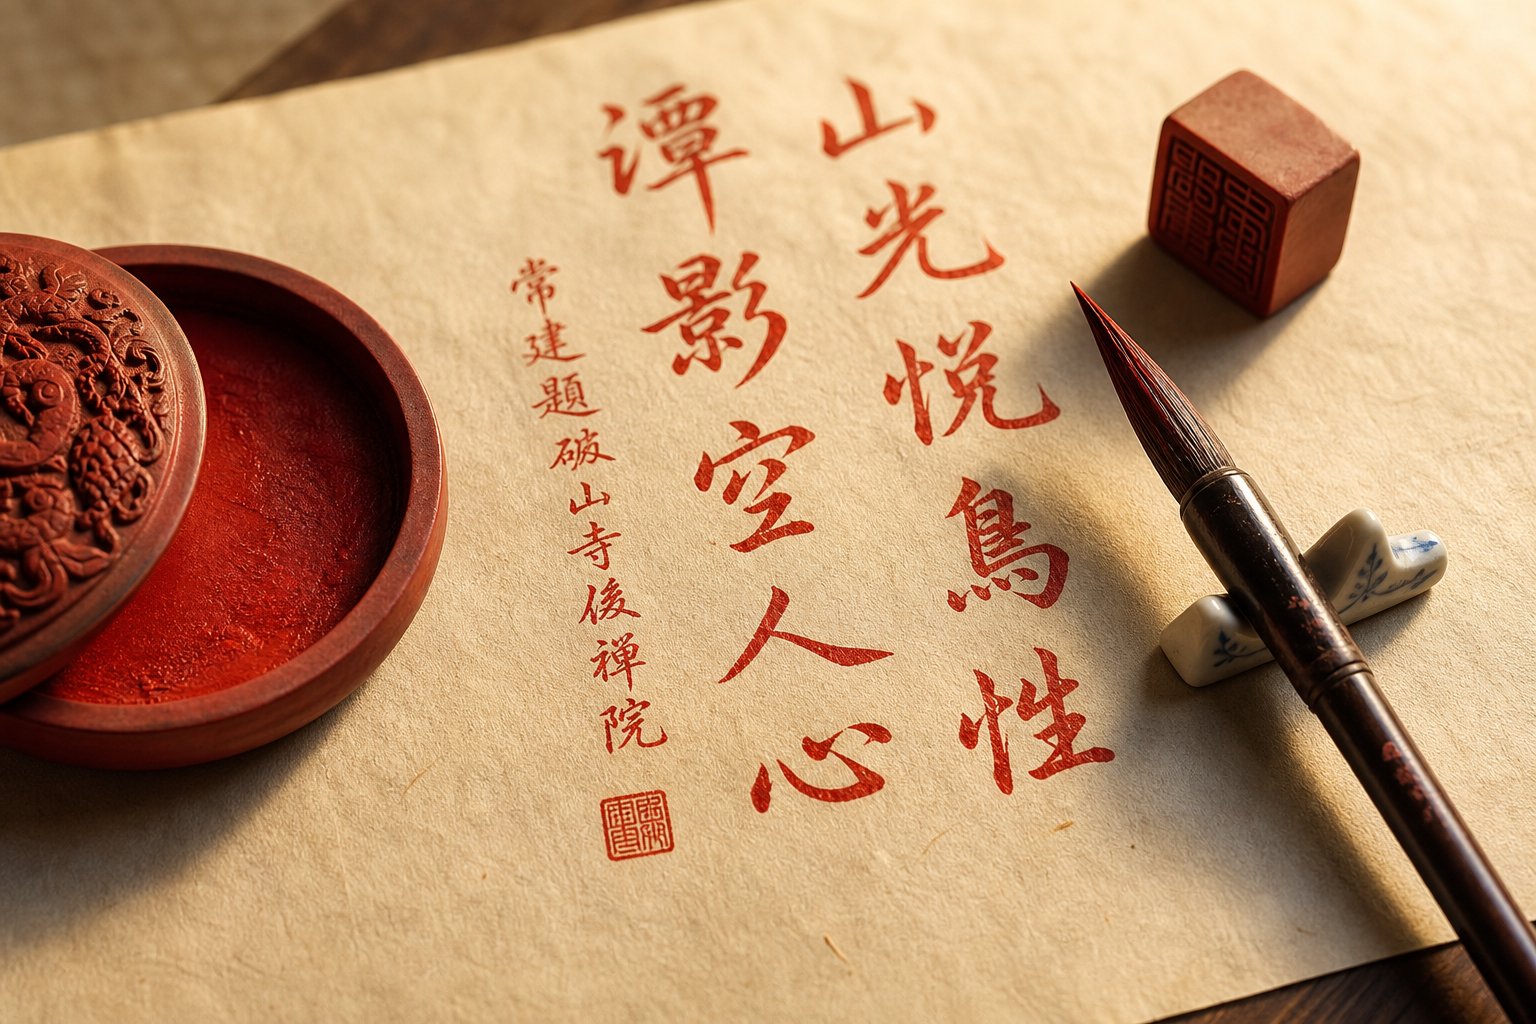 山光悦鳥性
潭影空人心
常建題破山寺後禪院